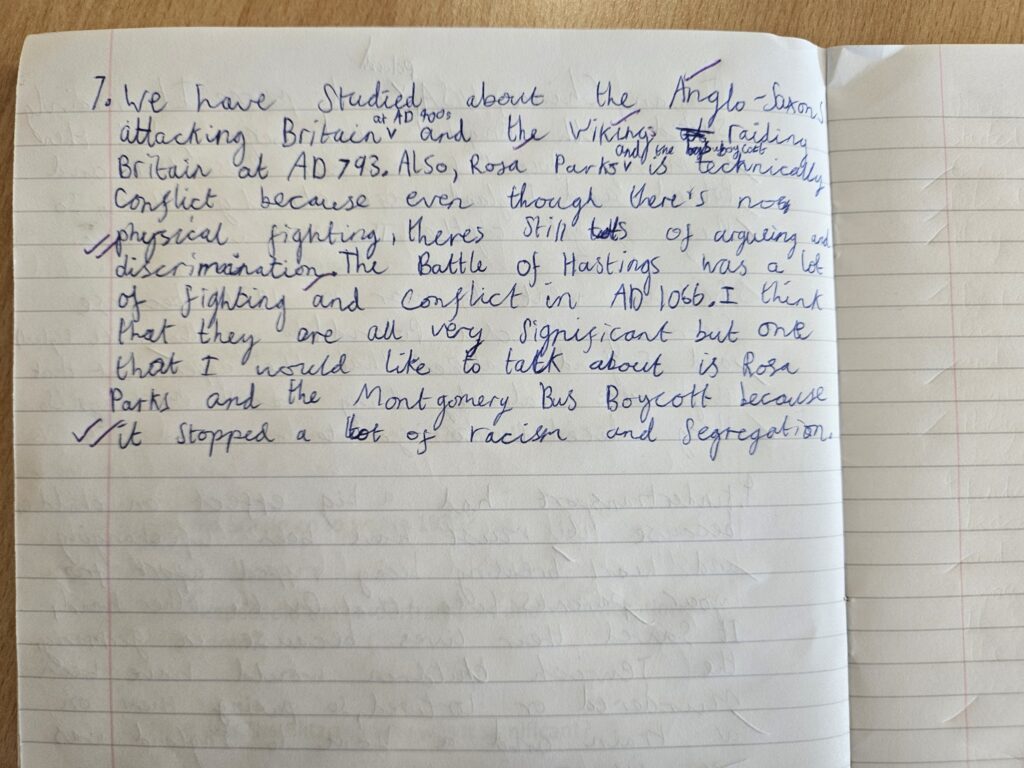 7. We have studied about the Anglo-Saxons
attacking Britain at AD 400s and the Vikings raiding
Britain at AD 793. Also, Rosa Parks and the boycott is technically
conflict because even though there's not
physical fighting, theres still lots of argueing and
discrimaination. The Battle of Hastings was a lot
of fighting and conflict in AD 1066. I think
that they are all very significant but one
that I would like to talk about is Rosa
Parks and the Montgomery Bus Boycott because
it stopped a lot of racism and segregation.